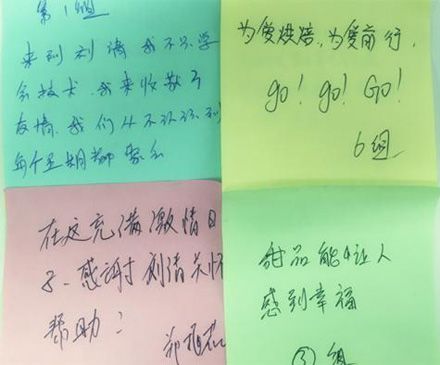 第1组
来到刘清我不只学
会技术.我来收获了
友情.我们从不认识到
每个星期都聚会
为爱烘焙、为爱前行,
go! go! Go!
6组
在这充满激情日
子、感谢刘清关怀
帮助:
郑
甜品能够让人
感到幸福
③组